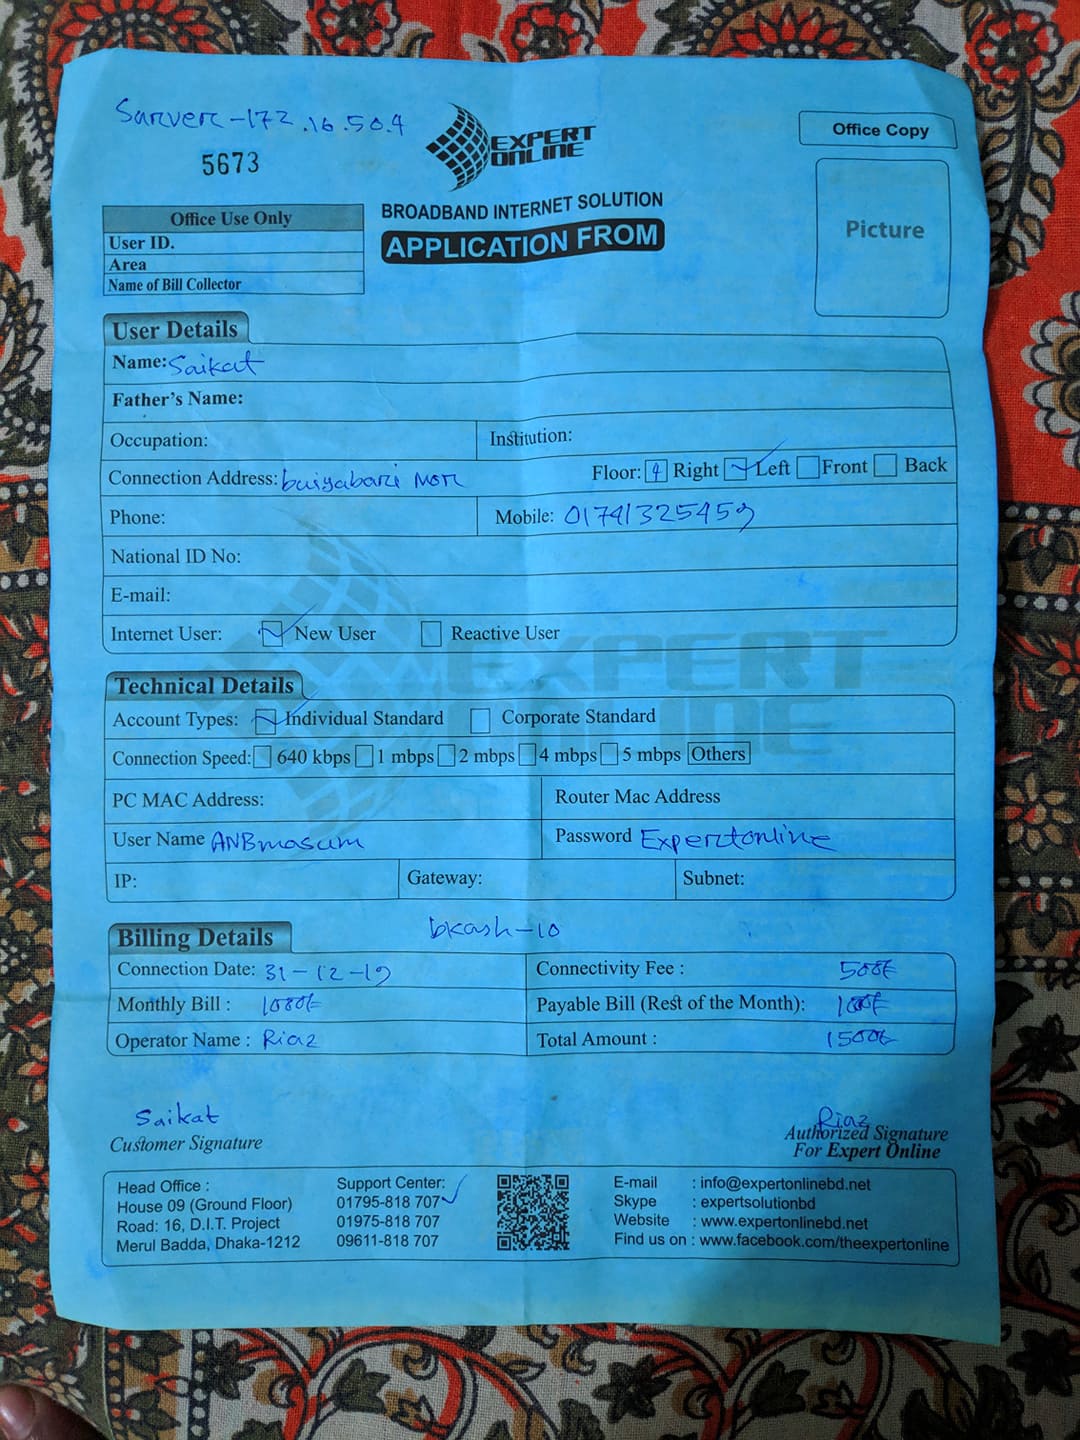 Sarver-172.16.50.4
5673
EXPERT
ONLINE
Office Copy
BROADBAND INTERNET SOLUTION
APPLICATION FROM
Picture
Office Use Only
User ID.
Area
Name of Bill Collector
User Details
Name: Saikat
Father's Name:
Occupation: Institution:
Connection Address: Floor: 4 Right Left Front Back
Phone: Mobile: 01741325459
National ID No:
E-mail:
Internet User: New User Reactive User
EXPERT
ONLINE
Technical Details
Account Types: Individual Standard Corporate Standard
Connection Speed: 640 kbps 1 mbps 2 mbps 4 mbps 5 mbps Others
PC MAC Address: Router Mac Address
User Name ANBmasum Password Expertonline
IP: Gateway: Subnet:
bkash-10
Billing Details
Connection Date: 31-12-19 Connectivity Fee :
Monthly Bill : Payable Bill (Rest of the Month):
Operator Name : Riaz Total Amount :
Saikat Riaz
Customer Signature Authorized Signature
For Expert Online
Head Office :
House 09 (Ground Floor)
Road: 16, D.I.T. Project
Merul Badda, Dhaka-1212
Support Center:
01795-818 707
01975-818 707
09611-818 707
E-mail : info@expertonlinebd.net
Skype : expertsolutionbd
Website : www.expertonlinebd.net
Find us on : www.facebook.com/theexpertonline